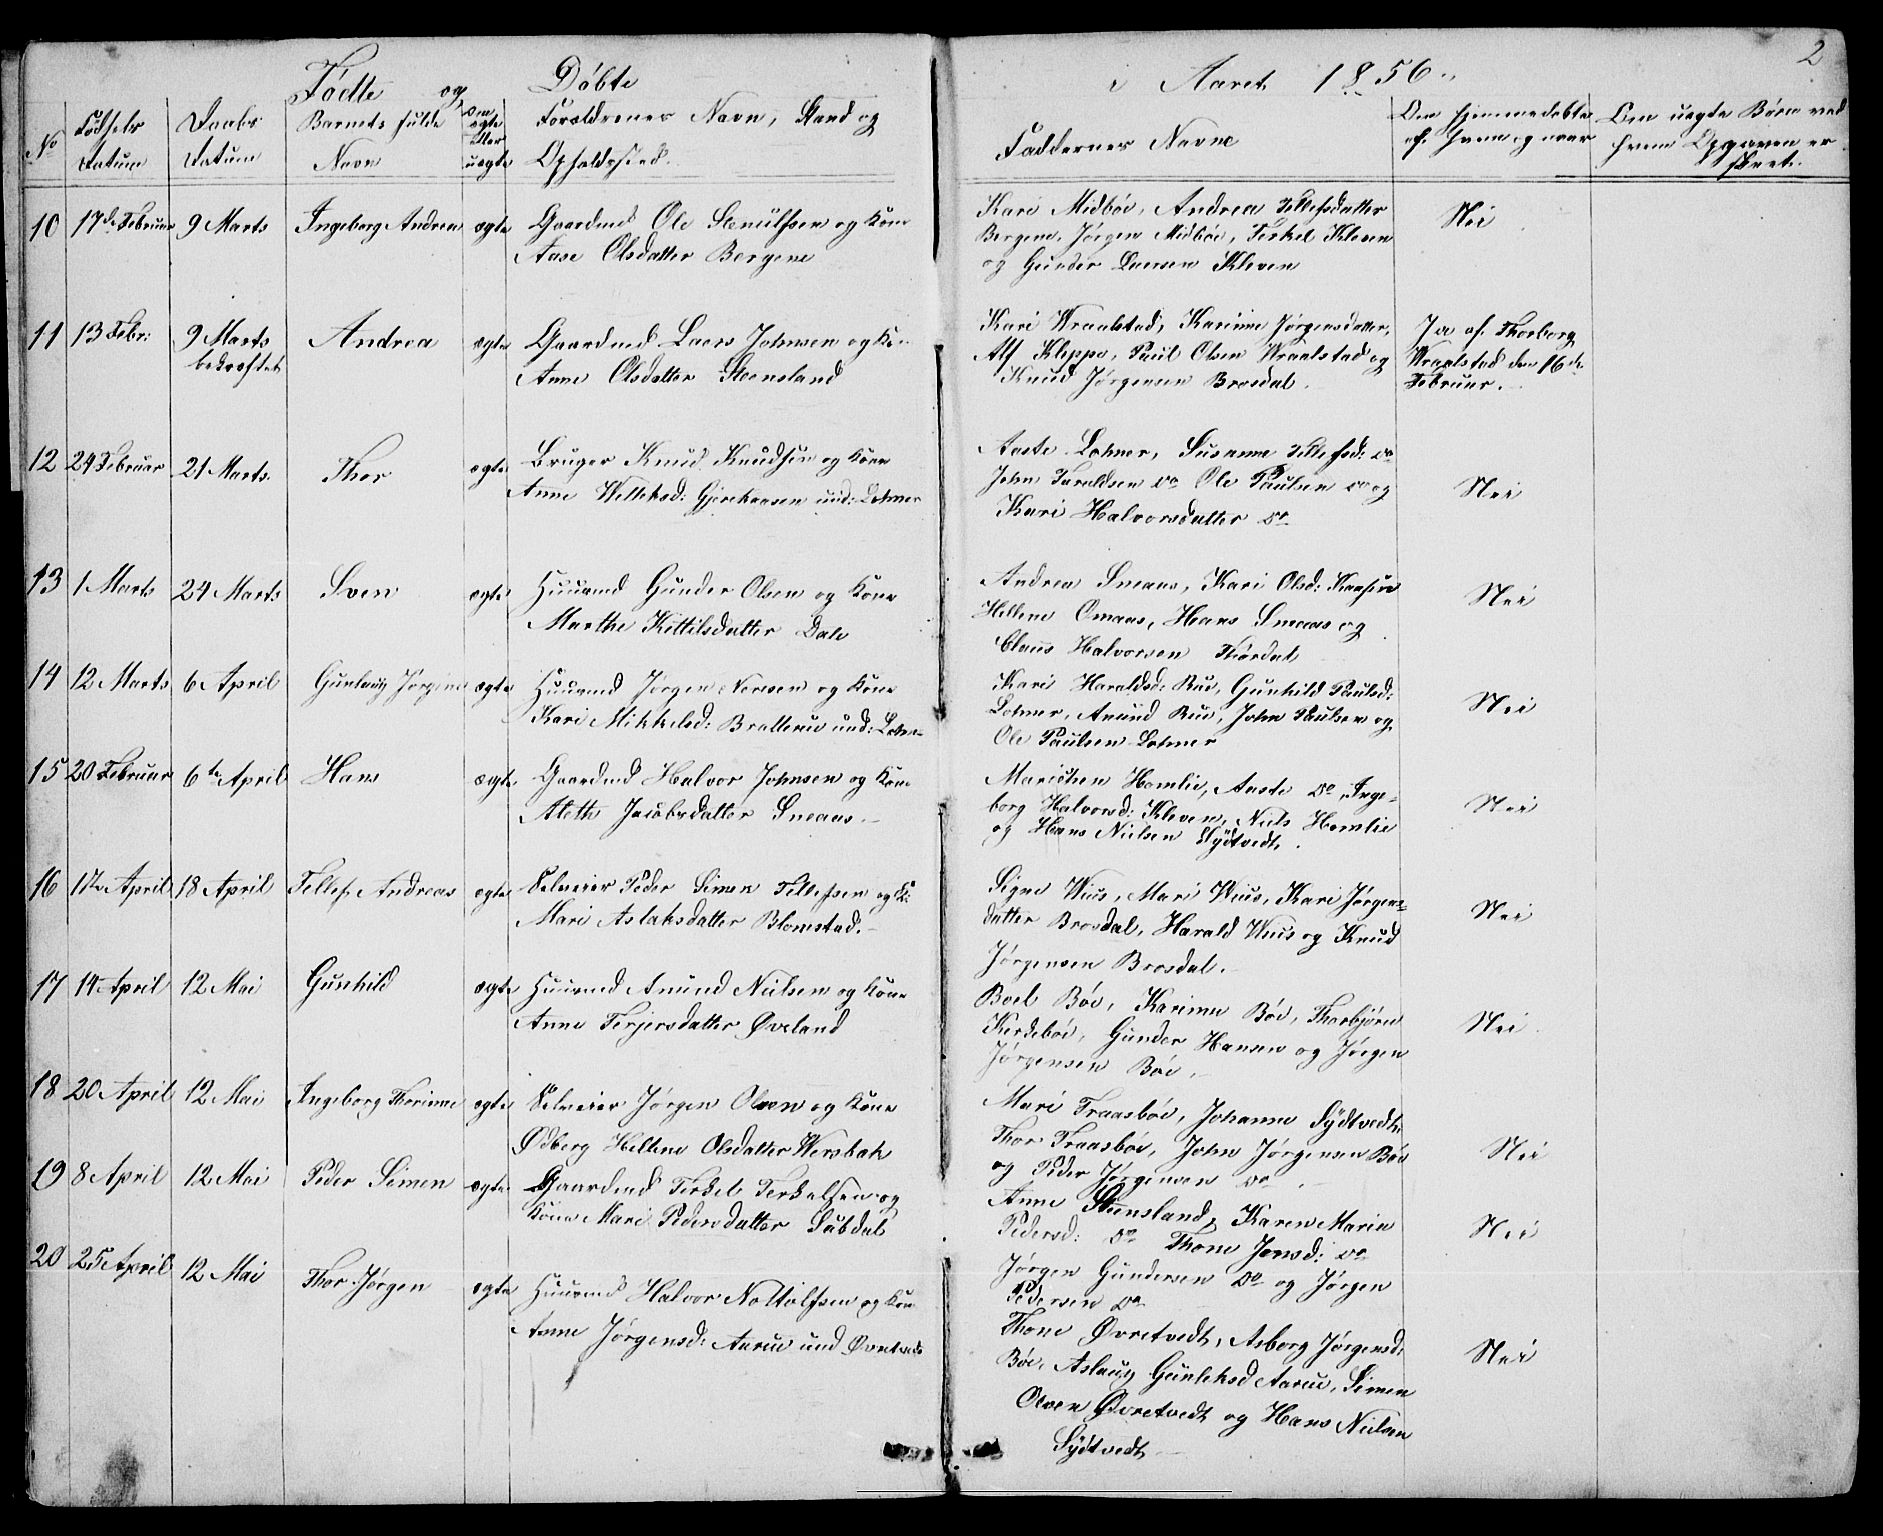 2
Fødte og Døbte i Aaret 1856.
No
Fødsels Datum
Daabs Datum
Barnets fulde Navn
Om ægte eller uægte
Forældrenes Navn, Stand og
Opholdssted.
Faddernes Navne
Om hjemmedøbte
af hvem og naar
Om uægte Børn ved
hvem Opgaven er
skeet.
10 17de Februar 9 Marts Ingeborg Andrea ægte Gaardmd Ole Knudsen og Kone
Aase Olsdatter Bergene
Kari Midbøe, Andrea Tellefsdatter
Bergene, Jørgen Midbøe, Terkel Kleven
og Gunder Laersen Kleven
Nei
11 13 Febr: 9 Marts Andrea ægte Gaardmd Laers Johnsen og Ko
bekræftet
Anne Olsdatter Steensland
Kari Wraalstad, Karinne Jørgensdatter,
Alf Kleppe, Paul Olsen Wraalstad og
Knud Jørgensen Brosdal.
Ja af Thorborg
Wraalstad den 16de
Februar.
12 24 Februar 21 Marts. Thor ægte Bruger Knud Knudsen og Kone
Anne Welleksd: und: Lohner
Aaste Lohner, Susanne Tellefsd: do
John Taraldsen do Ole Paulsen do og
Kari Halvorsdatter do
Nei
13 1 Marts 24 Marts Sven ægte Huusmd Gunder Olsen og Kone
Marthe Kittilsdatter Dale
Andrea Smeaas, Kari Olsd:
Hellene Omaas, Hans Smeaas og
Claus Halvorsen
Nei
14 12 Marts 6 April Gunlaug Jørgine ægte Huusmd Jørgen og Kone
Kari Mikkelsd: Bratterue und: Lohne
Kari Haraldsd: Rue, Gunhild Paulsd:
Lohner, Amund Rue, John Paulsen og
Ole Paulsen Lohner
Nei
15 20 Februar 6te April Hans ægte Gaardmd Halvor Johnsen og Kone
Aleth Jacobsdatter Smeaas.
Marichen Homlie, Aaste do, Inge-
borg Halvorsd: Kleven, Niels Homlie
og Hans Nielsen Sydtvedt.
Nei
16 17de April 18 April Tellef Andreas ægte Selveier Peder Simen Tellefsen og K:
Mari Aslaksdatter Blomstad.
Signe Wiiis, Mari Wiiis, Kari Jørgens-
datter Brosdal, Harald Wiiis og Knud
Jørgensen Brosdal.
Nei
17 14 April 12 Mai Gunhild ægte Huusmd Amund Nielsen og Kone
Anne Terjersdatter Øveland
Boel Bøe, Karinne Bøe, Thorbjørn
Kirkebøe, Gunder Hansen og Jørgen
Jørgensen Bøe.
Nei
18 20 April 12 Mai Ingeborg Thorinne ægte Selveier Jørgen Olsen og Kone
Ødberg Hellene Olsdatter Wersbak
Mari Fraasbøe, Johanne Sydtvedt
Thor Fraasbøe, John Jørgensen Bøe
og Peder Jørgensen do.
Nei
19 8 April 12 Mai Peder Simen ægte Gaardmd Terkel Terkelsen og
Kone Mari Pedersdatter Subdal
Anne Steensland, Karen Marie
Pedersd: do Thone Jonsd: do
Jørgen Gundersen do og Jørgen
Pedersen do
Nei
20 25 April 12 Mai Thor Jørgen ægte Huusmd Halvor Nottolfsen og Kone
Anne Jørgensd: Aarue und Øvretvedt
Thone Øvretvedt, Asborg Jørgensd:
Bøe, Aslaug Gunleksd Aarue, Simen
Olsen Øvretvedt og Hans Nielsen
Sydtvedt
Nei